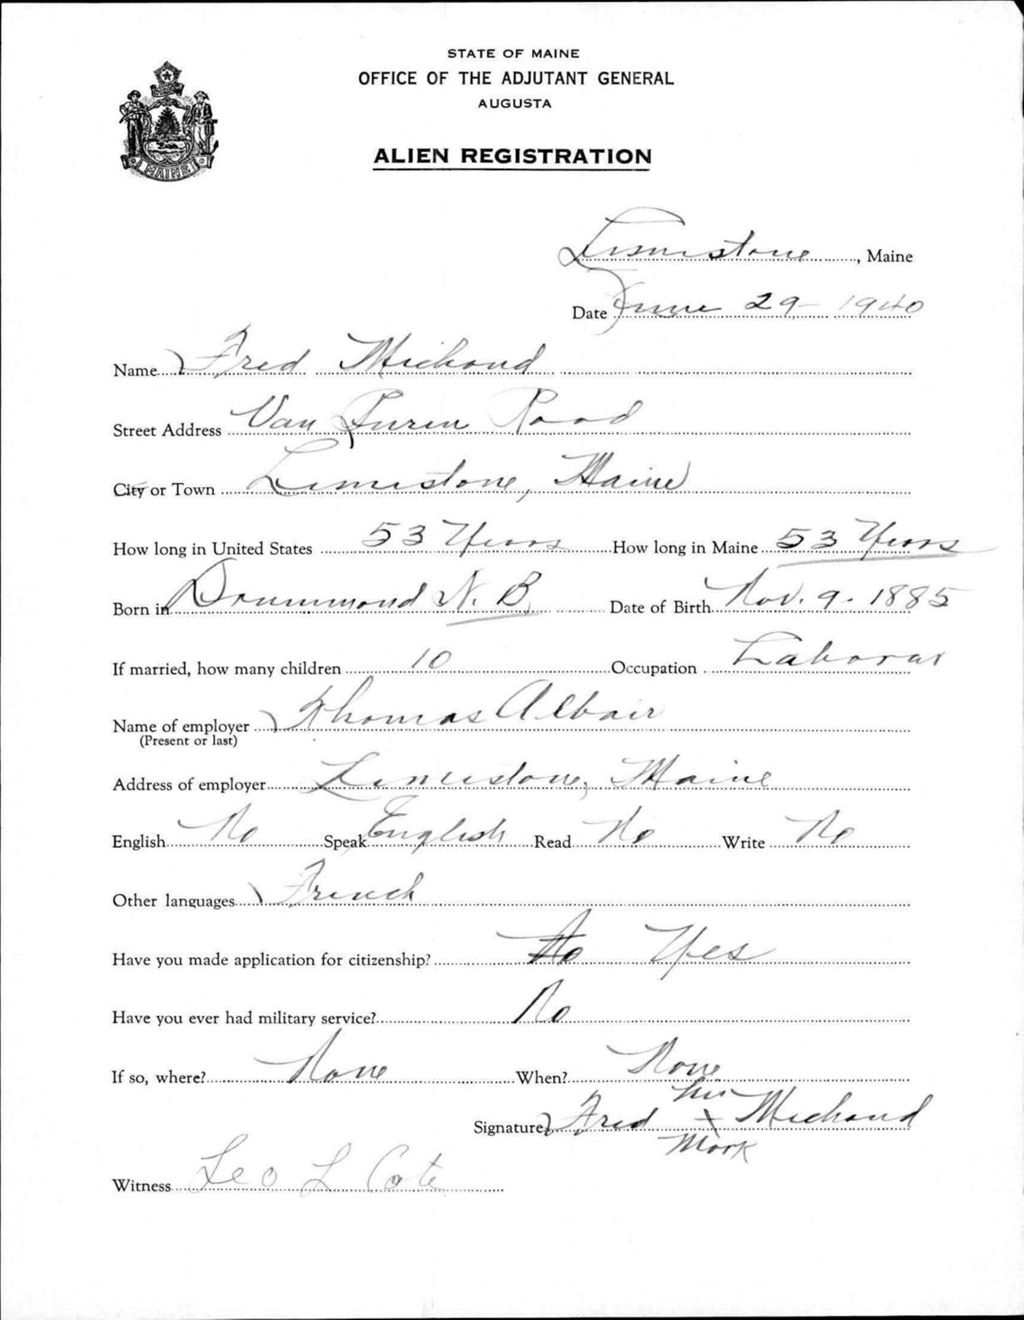 STATE OF MAINE
OFFICE OF THE ADJUTANT GENERAL
AUGUSTA
MAINE
ALIEN REGISTRATION
Limestone, Maine
Date June 29 - 1940
Name Fred Michaud
Street Address Van Buren Road
City or Town Limestone, Maine
How long in United States 53 Years How long in Maine 53 Years
Born in Drummond N. B. Date of Birth Nov. 9 - 1885
If married, how many children 10 Occupation Laborar
Name of employer Thomas Albair
(Present or last)
Address of employer Limestone, Maine
English No Speak English Read No Write No
Other languages French
Have you made application for citizenship? No Yes
Have you ever had military service? No
If so, where? None When? None
Signature Fred his X mark Michaud
Witness Leo L Cote